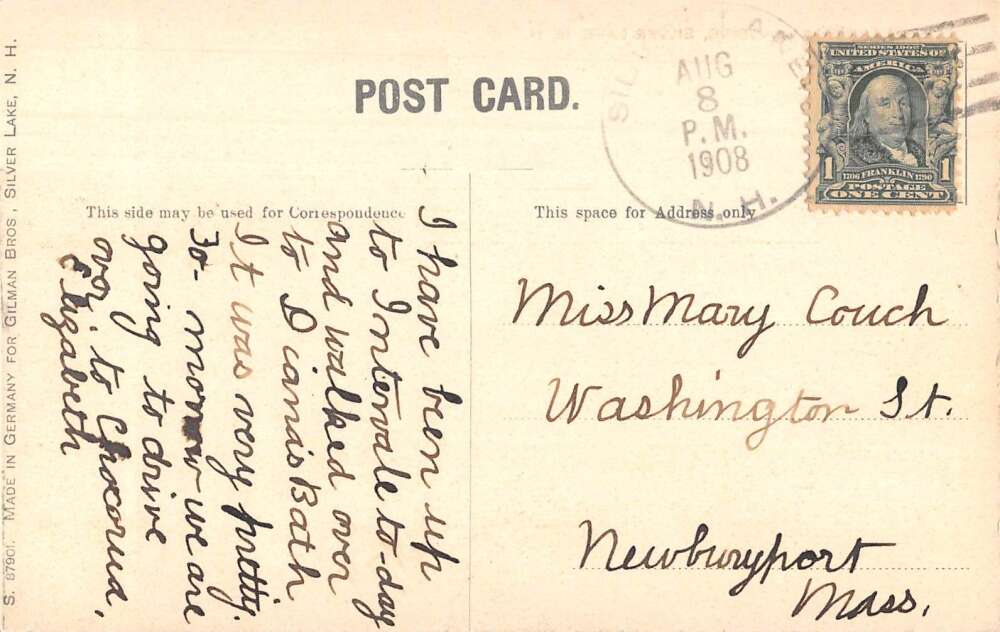 POST CARD.
SILVER LAKE
AUG
8
P.M.
1908
N.H.
SERIES 1902
UNITED STATES OF
AMERICA
1 1
1706 FRANKLIN 1790
POSTAGE
ONE CENT
This side may be used for Correspondence
This space for Address only
I have been up
to Intervale to-day
and walked over
to Dianis Bath
It was very pretty.
To-morrow we are
going to drive
over to Chocorua,
Elizabeth
Miss Mary Couch
Washington St.
Newburyport
Mass.
S. 87901. MADE IN GERMANY FOR GILMAN BROS., SILVER LAKE, N. H.